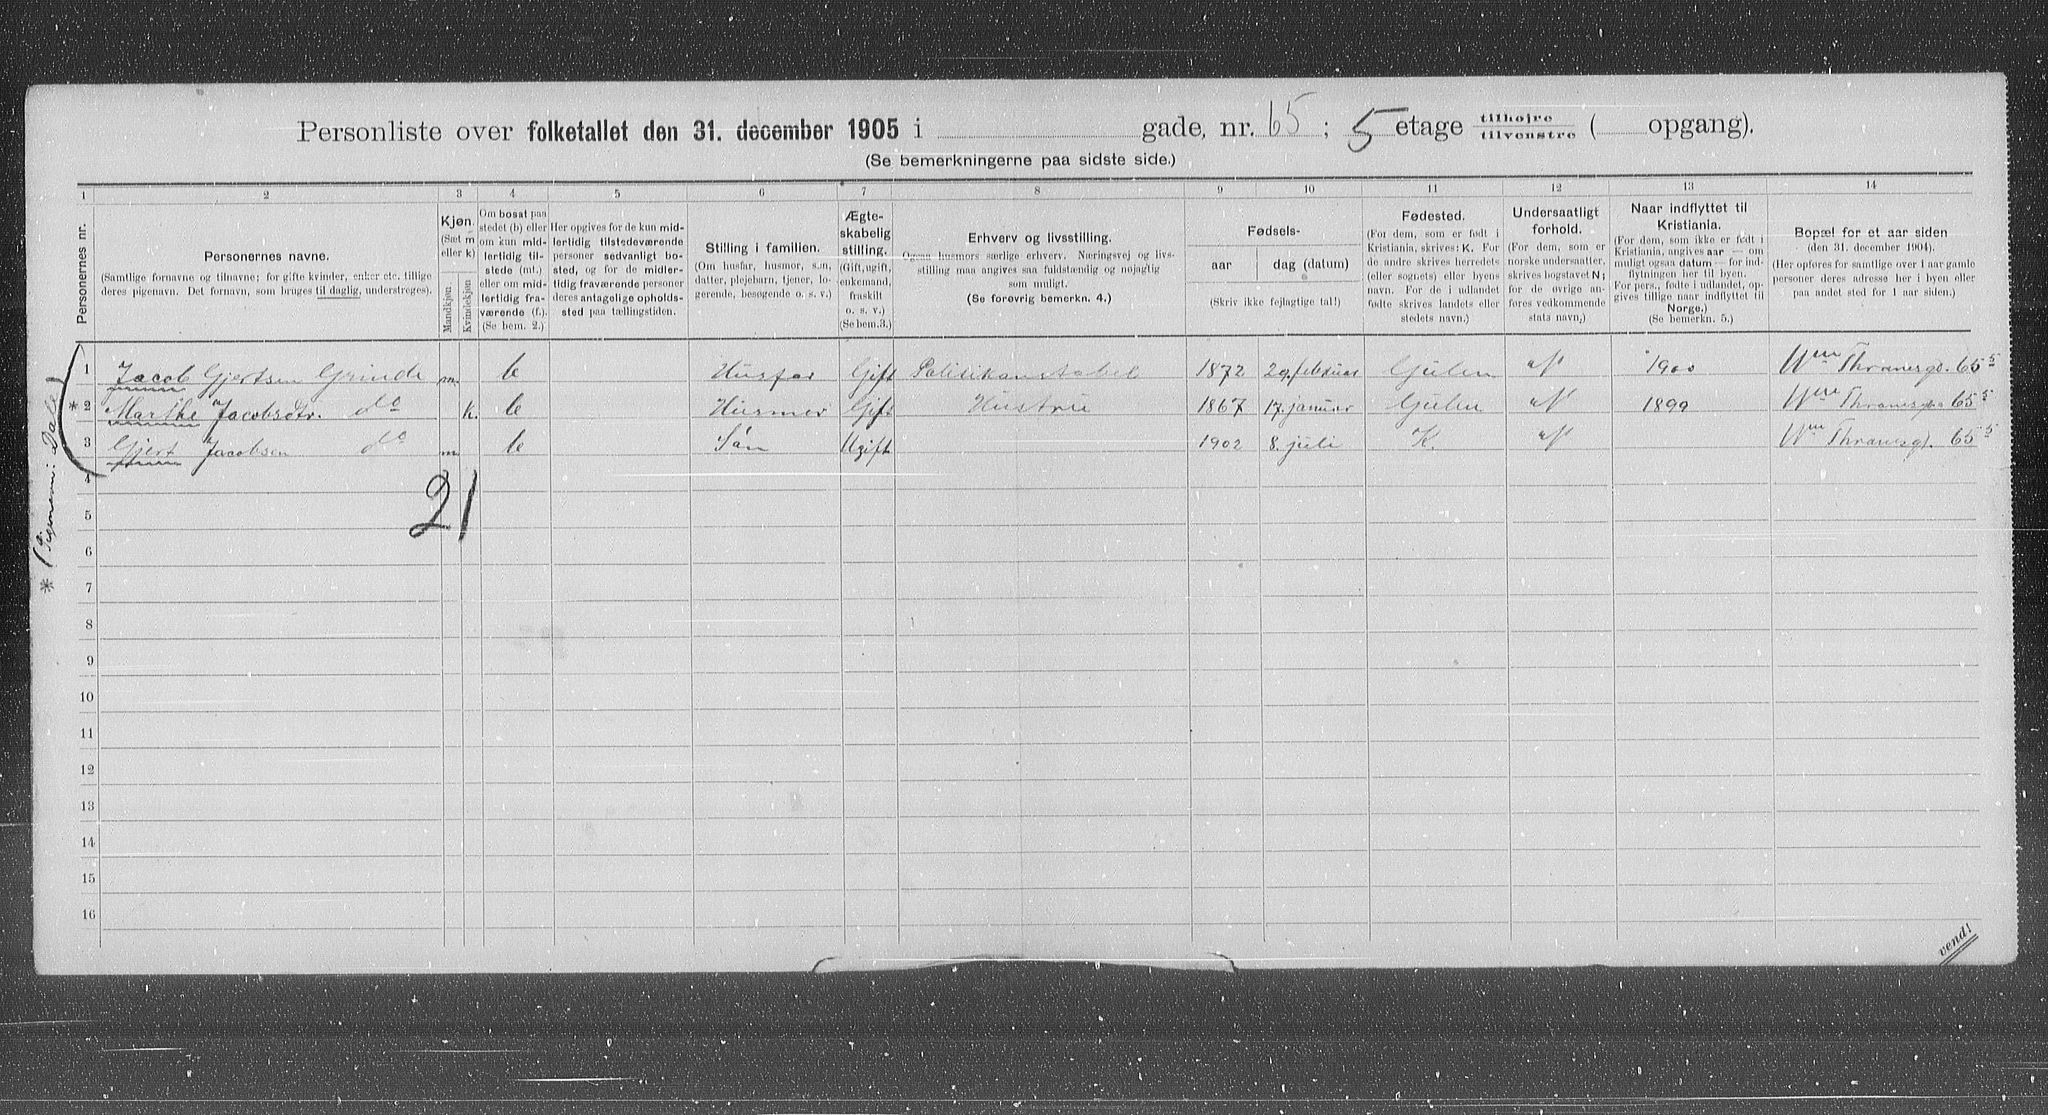 Personliste over folketallet den 31. december 1905 i gade, nr. 65; 5 etage tilhøjre tilvenstre ( opgang).
(Se bemerkningerne paa sidste side.)
1 2 3 4 5 6 7 8 9 10 11 12 13 14
Personernes nr.
Personernes navne.
(Samtlige fornavne og tilnavne; for gifte kvinder, enker etc. tillige
deres pigenavn. Det fornavn, som bruges til daglig, understreges).
Kjøn.
(Sæt m
eller k)
Mandkjøn
Kvindekjøn
Om bosat paa
stedet (b) eller
om kun mid-
lertidig til-
stede (mt.)
eller om mid-
lertidig fra-
værende (f.).
(Se bem. 2.)
Her opgives for de kun mid-
lertidig tilstedeværende
personer sedvanligt bo-
sted, og for de midler-
tidig fraværende personer
deres antagelige opholds-
sted paa tællingstiden.
Stilling i familien.
(Om husfar, husmor, søn,
datter, plejebarn, tjener, lo-
gerende, besøgende o. s. v.)
Ægte-
skabelig
stilling.
(Gift, ugift,
enkemand,
fraskilt
o. s. v.)
(Se bem. 3.)
Erhverv og livsstilling.
Ogsaa husmors særlige erhverv. Næringsvej og livs-
stilling maa angives saa fuldstændig og nøjagtig
som muligt.
(Se forøvrig bemerkn. 4.)
Fødsels-
aar dag (datum)
(Skriv ikke fejlagtige tal!)
Fødested.
(For dem, som er født i
Kristiania, skrives: K. For
de andre skrives herredets
(eller sognets) eller byens
navn. For de i udlandet
fødte skrives landets eller
stedets navn.)
Undersaatligt
forhold.
(For dem, som er
norske undersaatter,
skrives bogstavet N;
for de øvrige an-
føres vedkommende
stats navn.)
Naar indflyttet til
Kristiania.
(For dem, som ikke er født i
Kristiania, angives aar — om
muligt ogsaa datum — for ind-
flytningen her til byen.
For pers., fødte i udlandet, op-
gives tillige naar indflyttet til
Norge.)
(Se bemerkn. 5.)
Bopæl for et aar siden
(den 31. december 1904).
(Her opføres for samtlige over 1 aar gamle
personer deres adresse her i byen eller
paa andet sted for 1 aar siden.)
1 Jacob Gjertsen Grinde m. b Husfar Gift Politikonstabel 1872 29. februar Gulen N 1900 Wm Thranesgd. 65 5
* 2 Marthe Jacobsdtr. do k. b Husmor Gift Hustru 1867 17. januar Gulen N 1899 Wm Thranesgd. 65 5
3 Gjert Jacobsen do m b Søn Ugift 1902 8. juli K. N Wm Thranesgt. 65 5
4
21
5
6
7
8
9
10
11
12
13
14
15
16
* (Pigenavn: Dale)
vend!